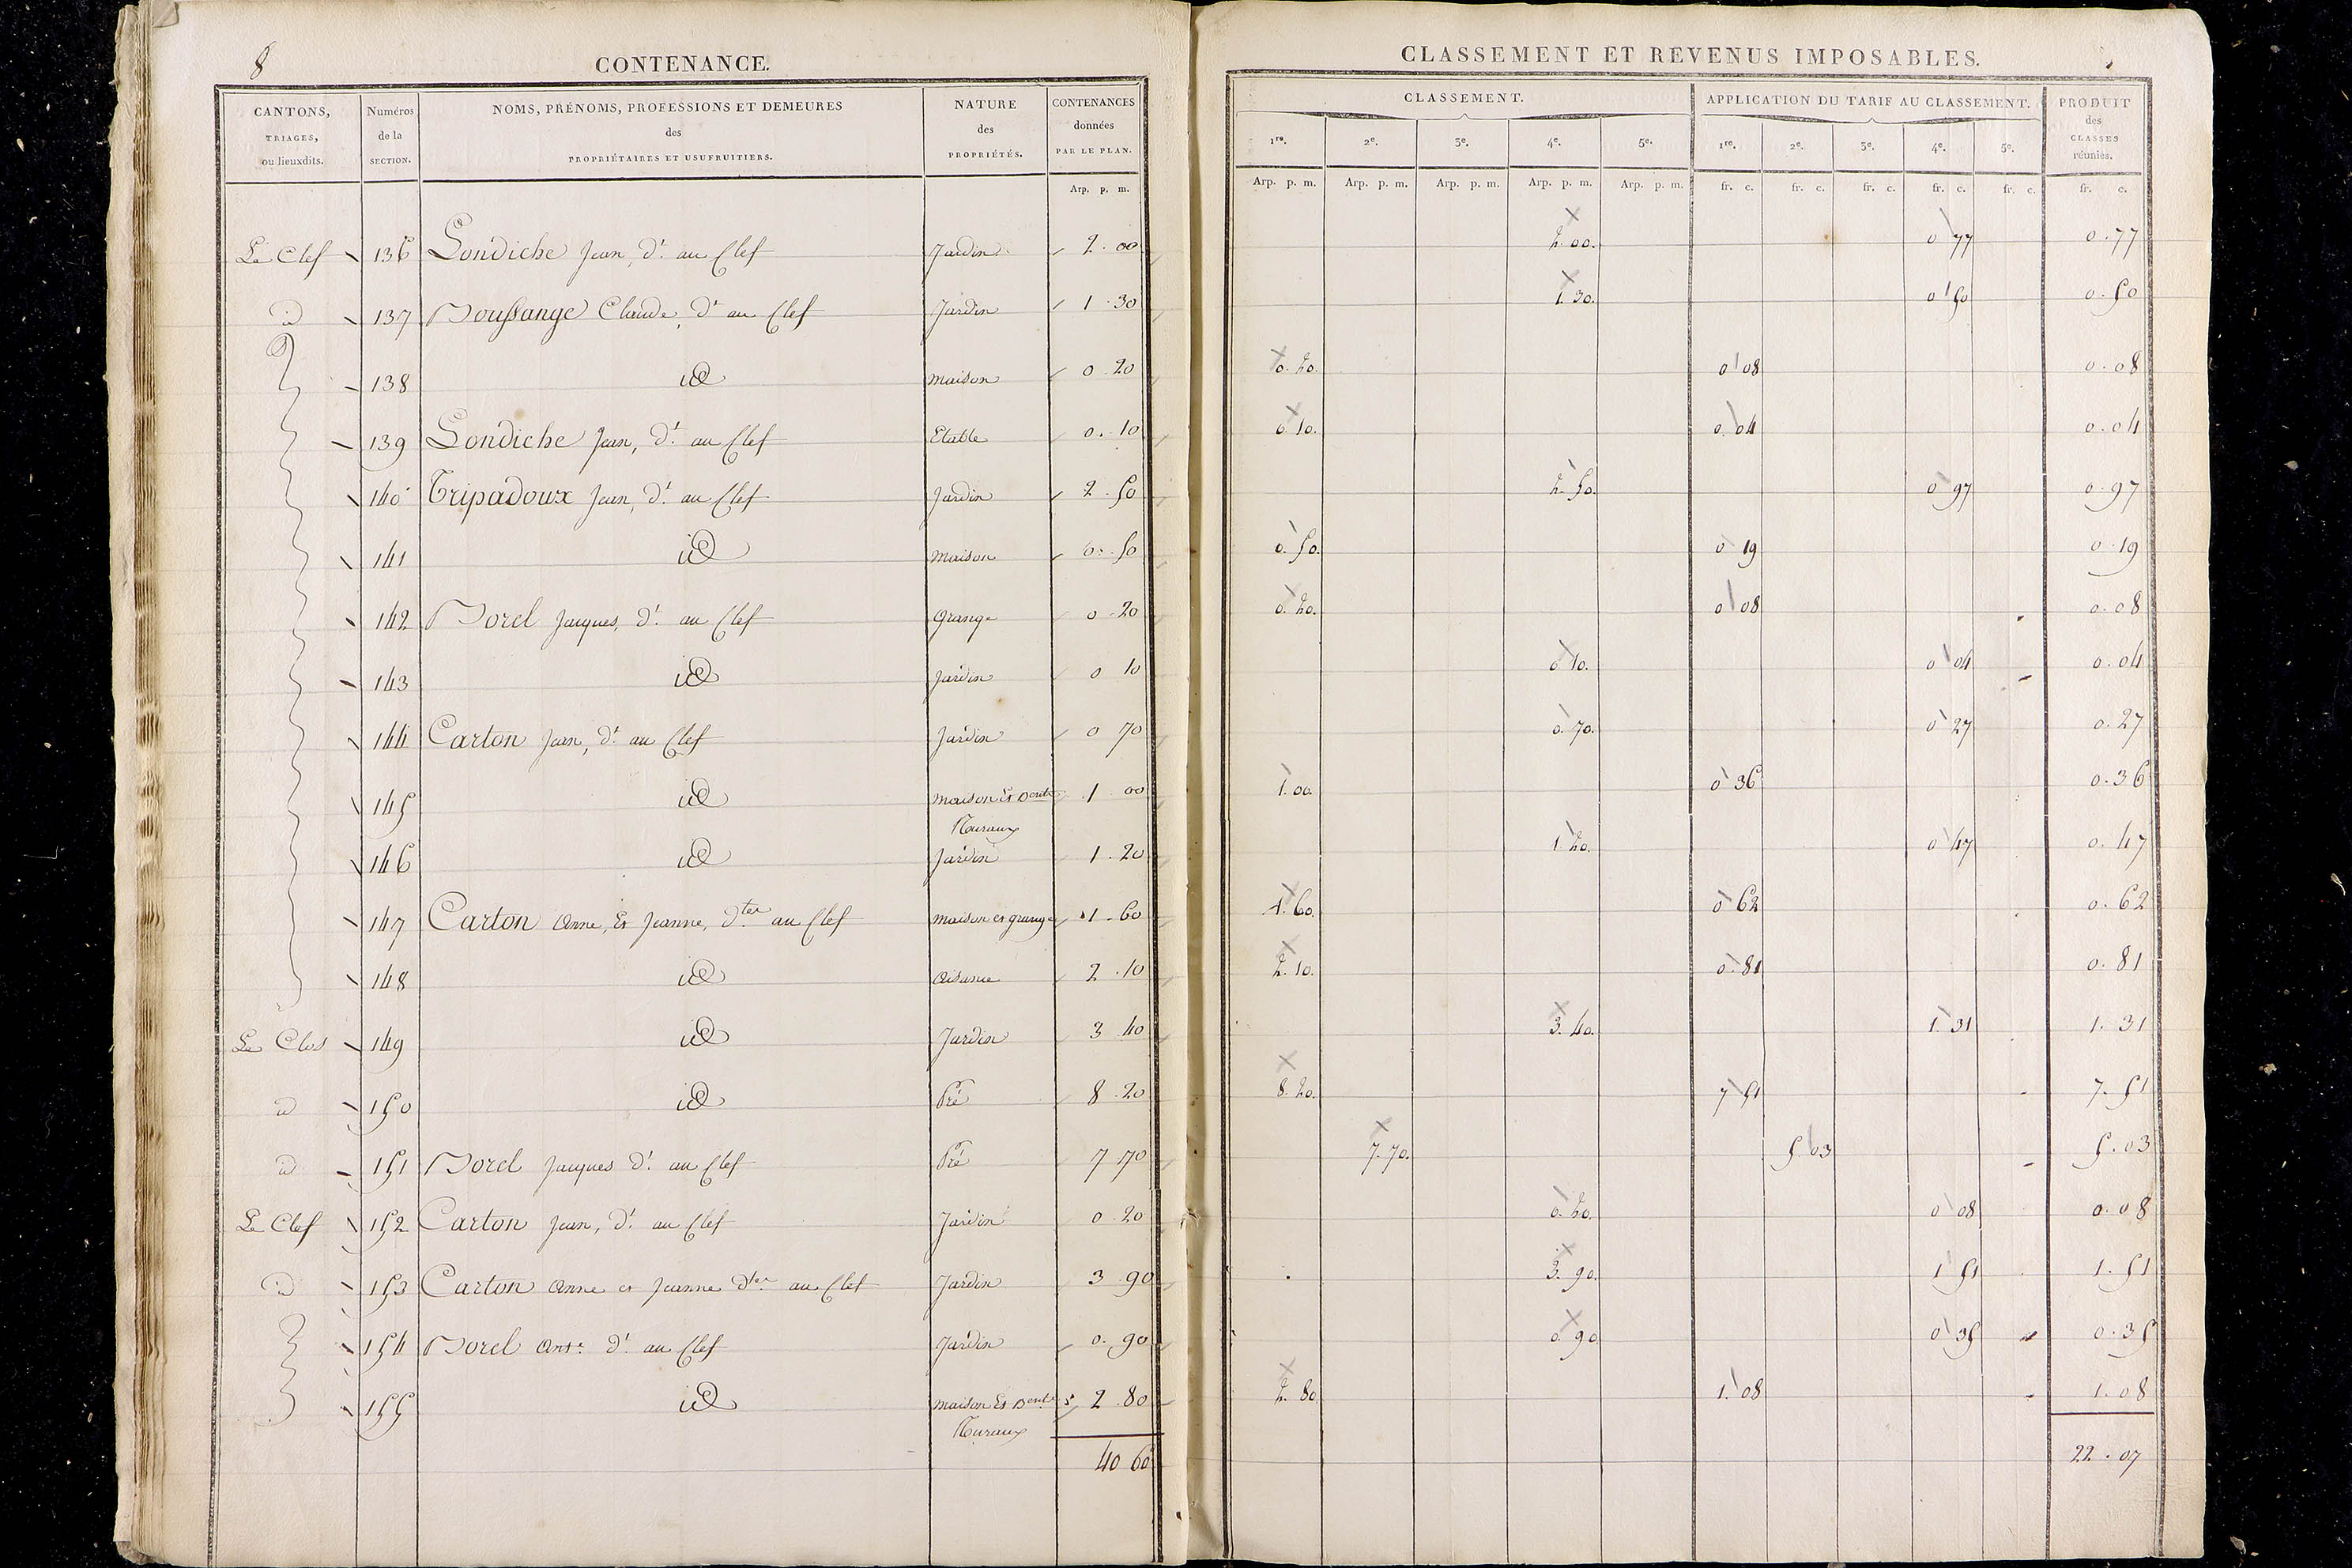 8
CONTENANCE.
CANTONS, TRIAGES, ou lieuxdits. | Numéros de la SECTION. | NOMS, PRÉNOMS, PROFESSIONS ET DEMEURES des PROPRIÉTAIRES ET USUFRUITIERS. | NATURE des PROPRIÉTÉS. | CONTENANCES données PAR LE PLAN.
Arp. p. m.
Le Clef 136 Londiche Jean, dt. au Clef Jardin 2.00
id 137 Doussange Claude, dt au Clef Jardin 1.30
138 id maison 0.20
139 Londiche Jean, dt. au Clef Etable 0.10
140 Tripadoux Jean, dt. au Clef Jardin 2.50
141 id maison 0.50
142 Dorel Jacques, dt. au Clef Grange 0.20
143 id Jardin 0 10
144 Carton Jean, dt. au Clef Jardin 0 70
145 id maison et Bent. 1 00
Ruraux
146 id Jardin 1.20
147 Carton Anne, Et Jeanne, dter au Clef maison et grange 1.60
148 id aisance 2.10
Le Clos 149 id Jardin 3 40
id 150 id Pré 8.20
id 151 Dorel Jacques dt. au Clef Pré 7 70
Le Clef 152 Carton Jean, dt. au Clef Jardin 0.20
id 153 Carton Anne et Jeanne dter au Clef Jardin 3 90
154 Dorel Ant.e dt. au Clef Jardin 0.90
155 id maison Et Bent.s 2.80
Ruraux
40 60
CLASSEMENT ET REVENUS IMPOSABLES.
CLASSEMENT. | APPLICATION DU TARIF AU CLASSEMENT. | PRODUIT des CLASSES réunies.
1re. 2e. 3e. 4e. 5e. 1re. 2e. 3e. 4e. 5e.
Arp. p. m. Arp. p. m. Arp. p. m. Arp. p. m. Arp. p. m. fr. c. fr. c. fr. c. fr. c. fr. c. fr. c.
2.00. 0 77 0.77
1.30. 0 50 0.50
0.20. 0 08 0.08
0.10. 0.04 0.04
2.50. 0 97 0.97
0.50. 0 19 0.19
0.20. 0 08 0.08
0 10. 0 04 0.04
0.70. 0 27 0.27
1.00. 0 36 0.36
1 20. 0 47 0.47
1.60. 0 62 0.62
2.10. 0.81 0.81
3.40. 1.31 1.31
8.20. 7 51 7.51
7.70. 5.03 5.03
0.20. 0 08 0.08
3.90. 1 51 1.51
0.90 0 35 0.35
2.80 1.08 1.08
22.07